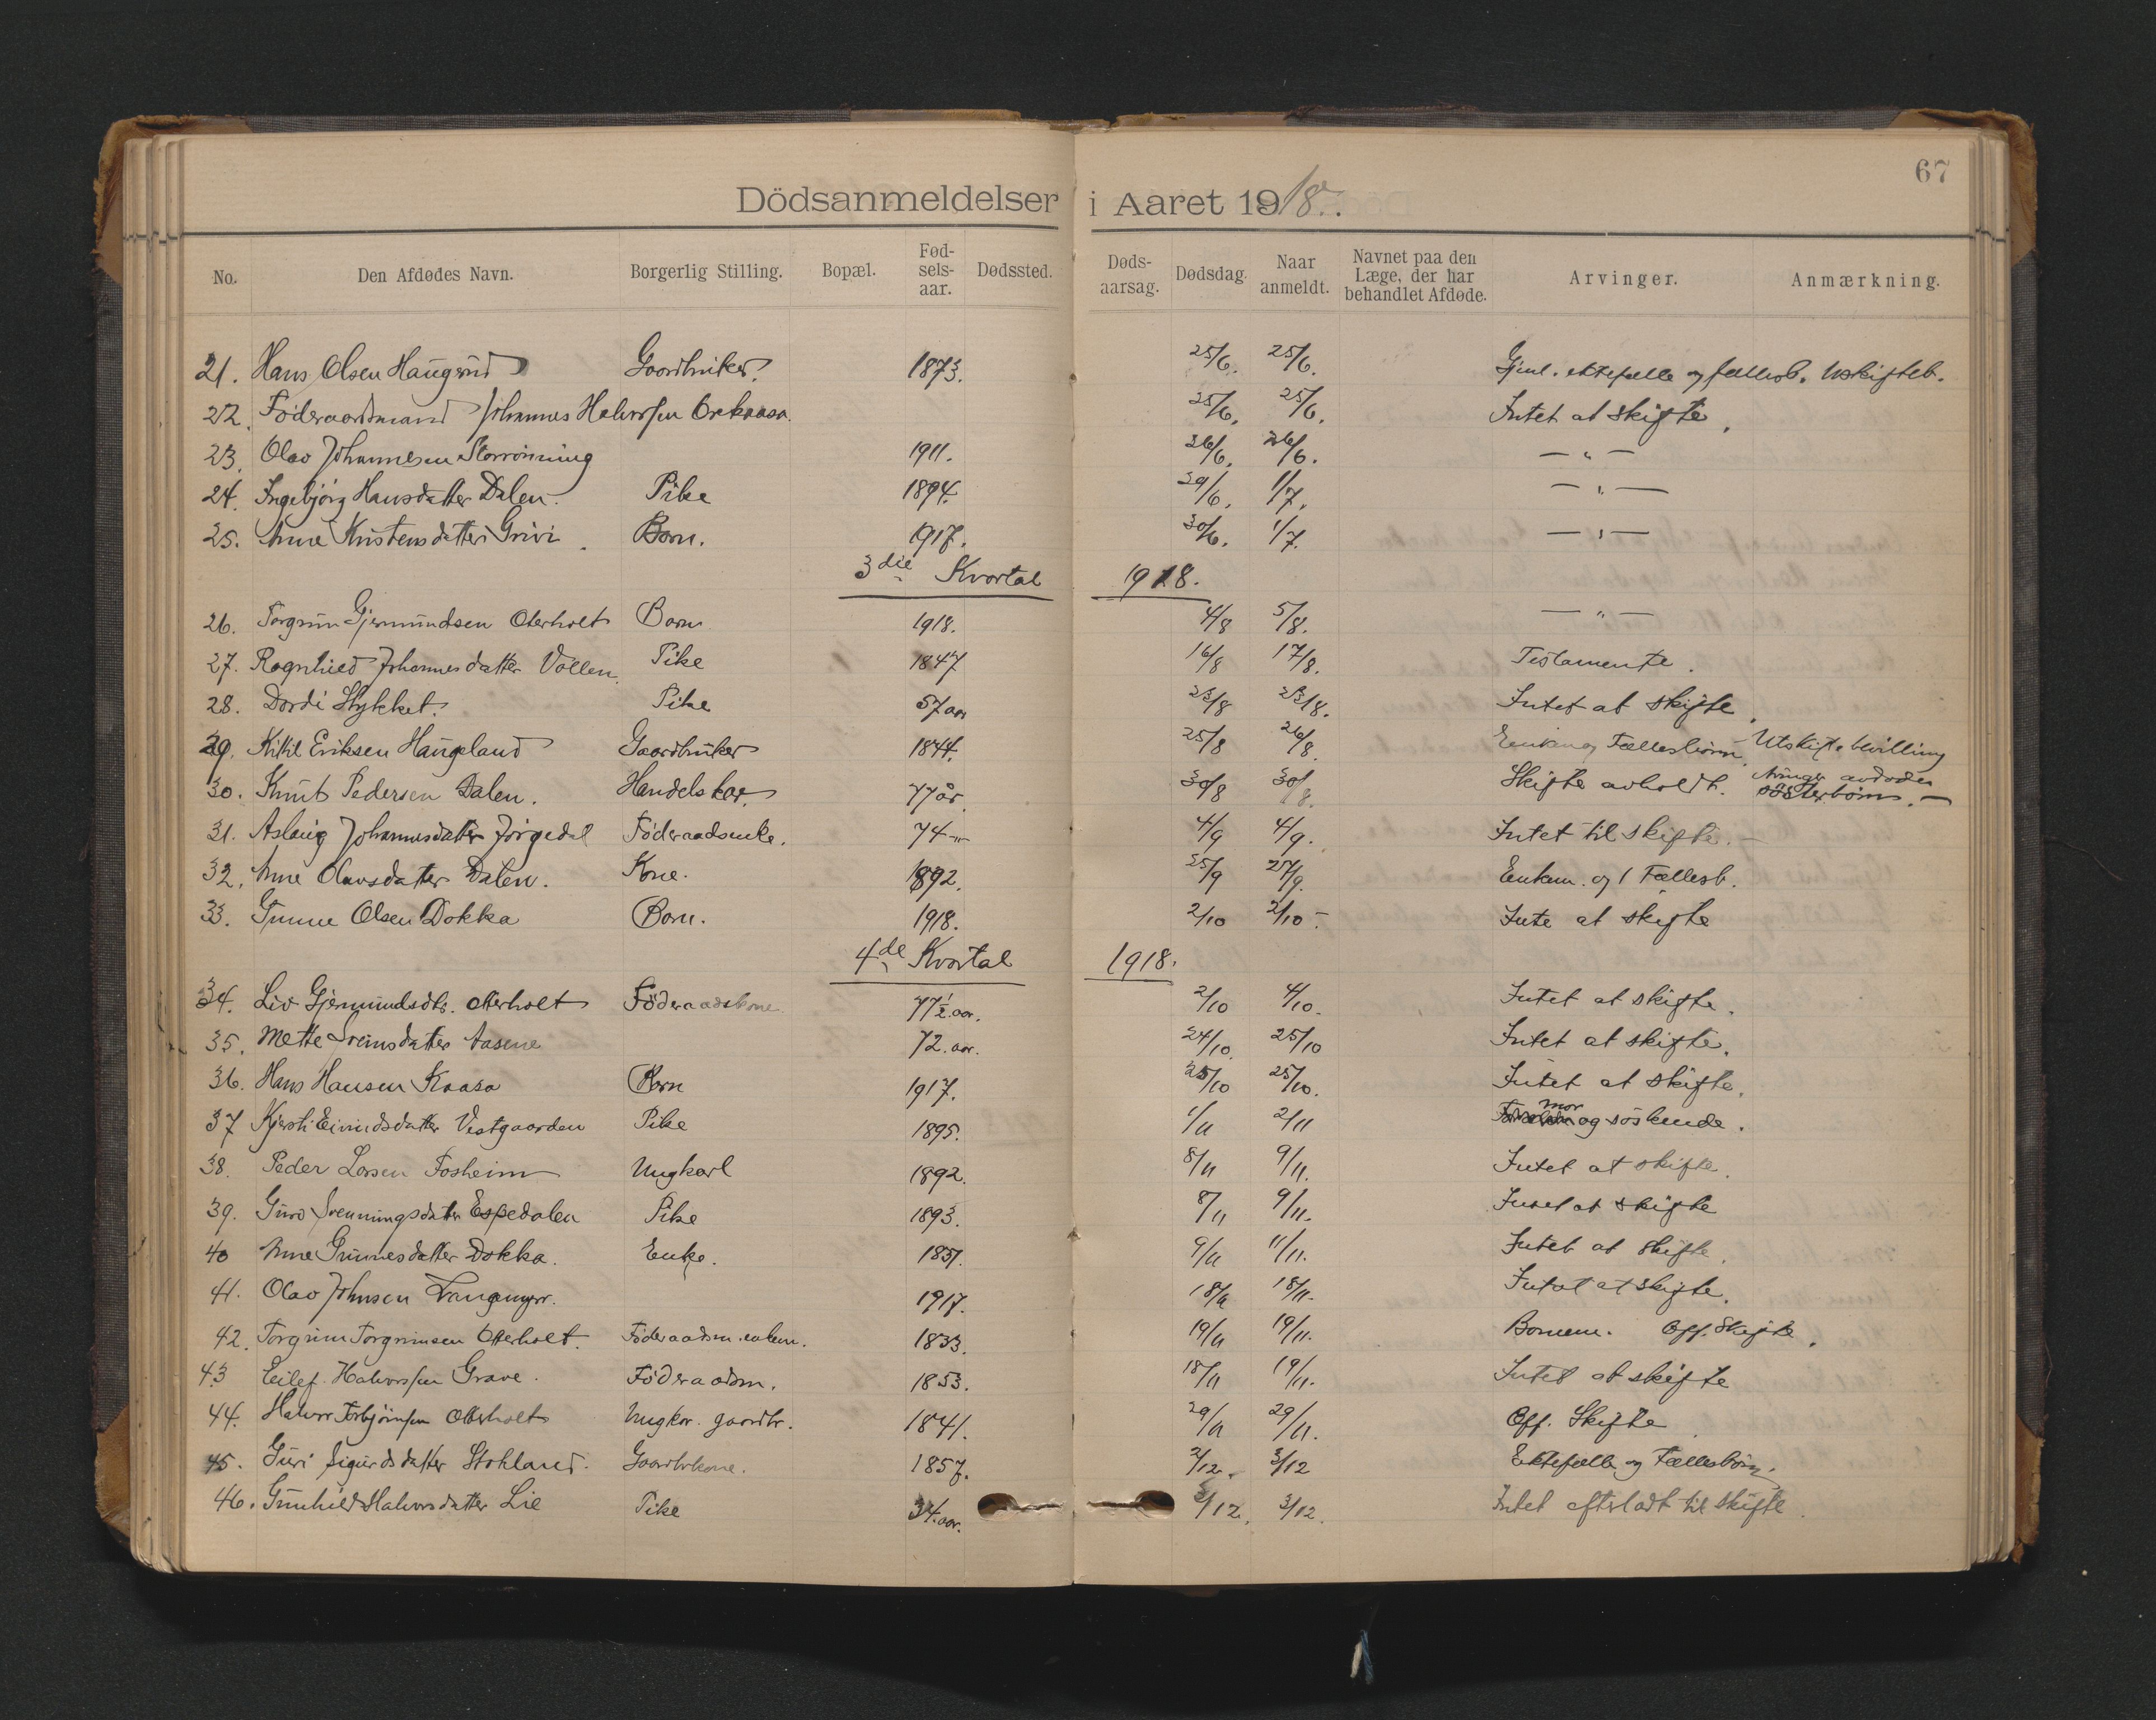 67
Dödsanmeldelser i Aaret 1918.
No. Den Afdødes Navn. Borgerlig Stilling. Bopæl. Fød-sels-aar. Dødssted. Døds-aarsag. Dødsdag. Naar anmeldt. Navnet paa den Læge, der har behandlet Afdøde. Arvinger. Anmærkning.
21. Hans Olsen Haugrud Gaardbruker. 1873. 25/6. 25/6. Gjenl. ektefælle og fællesb. Uskifteb.
22. Föderaadsmand Johannes Halvorsen 25/6. 25/6. Intet at skifte.
23. Olav Johannesen Storrönning 1911. 26/6. 26/6. — " —
24. Ingebjörg Hansdatter Dalen. Pike 1894. 29/6. 1/7. — " —
25. Anne Kristensdatter Grivi. Barn. 1917. 30/6. 1/7. — " —
3die Kvartal 1918.
26. Torgrim Gjermundsen Oterholt Barn 1918. 4/8 5/8. — " —
27. Ragnhild Johannesdatter Vollen. Pike 1847 16/8 17/8. Testamente.
28. Dordi Stykket. Pike 57 aar 23/8 23/8. Intet at skifte.
29. Kittil Eriksen Haugeland Gaardbruker 1844. 25/8 26/8. Enken og Fællesbörn. Utskiftebevilling
30. Knut Pedersen Dalen. Handelskar. 77 år. 30/8 30/8. Skifte avholdt. Arvinger avdödes sösterbörn. —
31. Aslaug Johannesdatter Jörgedal Föderaadsenke. 74 — " 4/9 4/9. Intet til skifte. —
32. Anne Olavsdatter Dalen. Kone. 1892. 25/9 27/9. Enkem. og 1 Fællesb.
33. Gunne Olsen Dokka Barn. 1918. 2/10 2/10 — Inte at skifte
4de Kvartal 1918.
34. Liv Gjermundsdtr. Otterholt Föderaadskone 77½ aar. 2/10 4/10. Intet at skifte.
35. Mette Sveinsdatter Aasene 72. aar. 24/10. 25/10 Intet at skifte.
36. Hans Hansen Kaasa Barn 1917. 25/10 25/10. Intet at skifte.
37 Kjersti Eivindsdatter Vestgaarden Pike 1895. 1/11 2/11 mor og söskende.
38. Peder Larsen Fosheim Ungkarl 1892. 8/11 9/11. Intet at skifte.
39. Guro Svenningsdatter Espedalen Pike 1893. 8/11 9/11. Intet at skifte
40 Anne Gunnesdatter Dokka. Enke. 1851. 9/11 11/11. Intet at skifte.
41. Olav Johnsen Langmyr. 1917. 18/11 18/11. Intet at skifte.
42. Torgrim Torgrimsen Otterholt. Föderaadsm. enkem. 1833. 19/11 19/11. Barnene. Off. Skifte.
43 Eilef Halvorsen Grave. Föderaadsm. 1853. 18/11 19/11. Intet at skifte
44. Halvor Torbjörnsen Otterholt Ungkar. gaardbr. 1841. 29/11 29/11. Off. Skifte
45. Guri Sigurdsdatter Stokland. Gaardbrkone. 1857. 2/12. 3/12 Ektefælle og Fællesbörn.
46. Gunhild Halvorsdatter Lie Pike 34. aar. 3/12. 3/12. Intet efterladt til skifte.